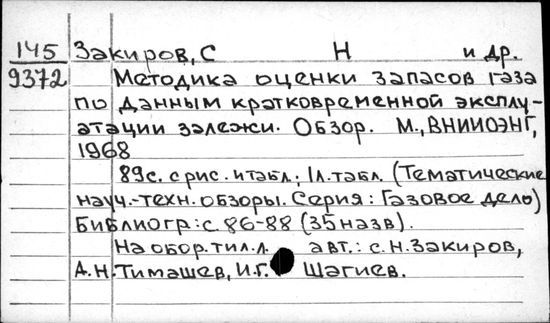 145 Закиров, С Н и др.
9372 Методика оценки запасов газа
по данным кратковременной эксплу-
атации залежи. Обзор. М., ВНИИОЭНГ,
1968
89с. с рис. и табл.; 1л. табл. (Тематические
науч.-техн. обзоры. Серия: Газовое дело)
Библиогр: с. 86-88 (35 назв).
На обор. тил. л. авт.: С.Н. Закиров,
А.Н. Тимашев, И.Г. Шагиев.